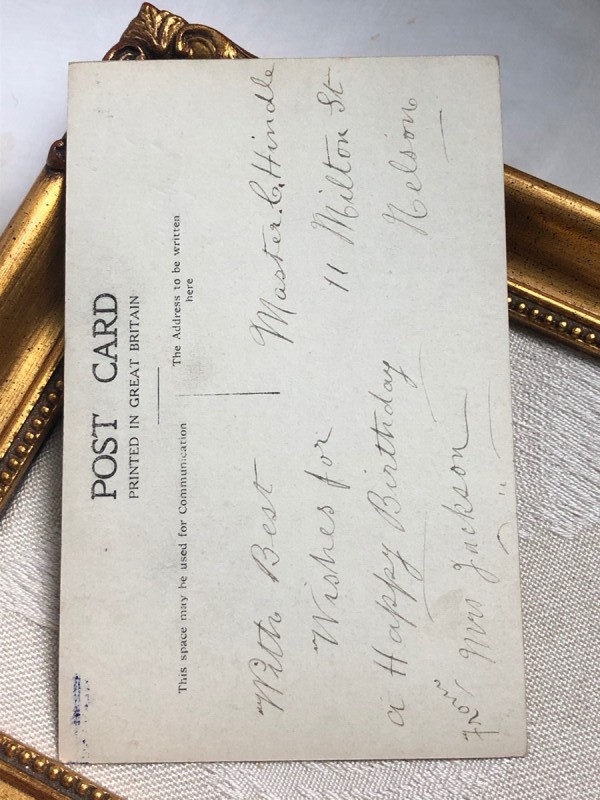 POST CARD
PRINTED IN GREAT BRITAIN
This space may be used for Communication
The Address to be written
here
With Best
Wishes for
a Happy Birthday
from Mrs Jackson
Master. C. Hindle
11 Milton St
Nelson